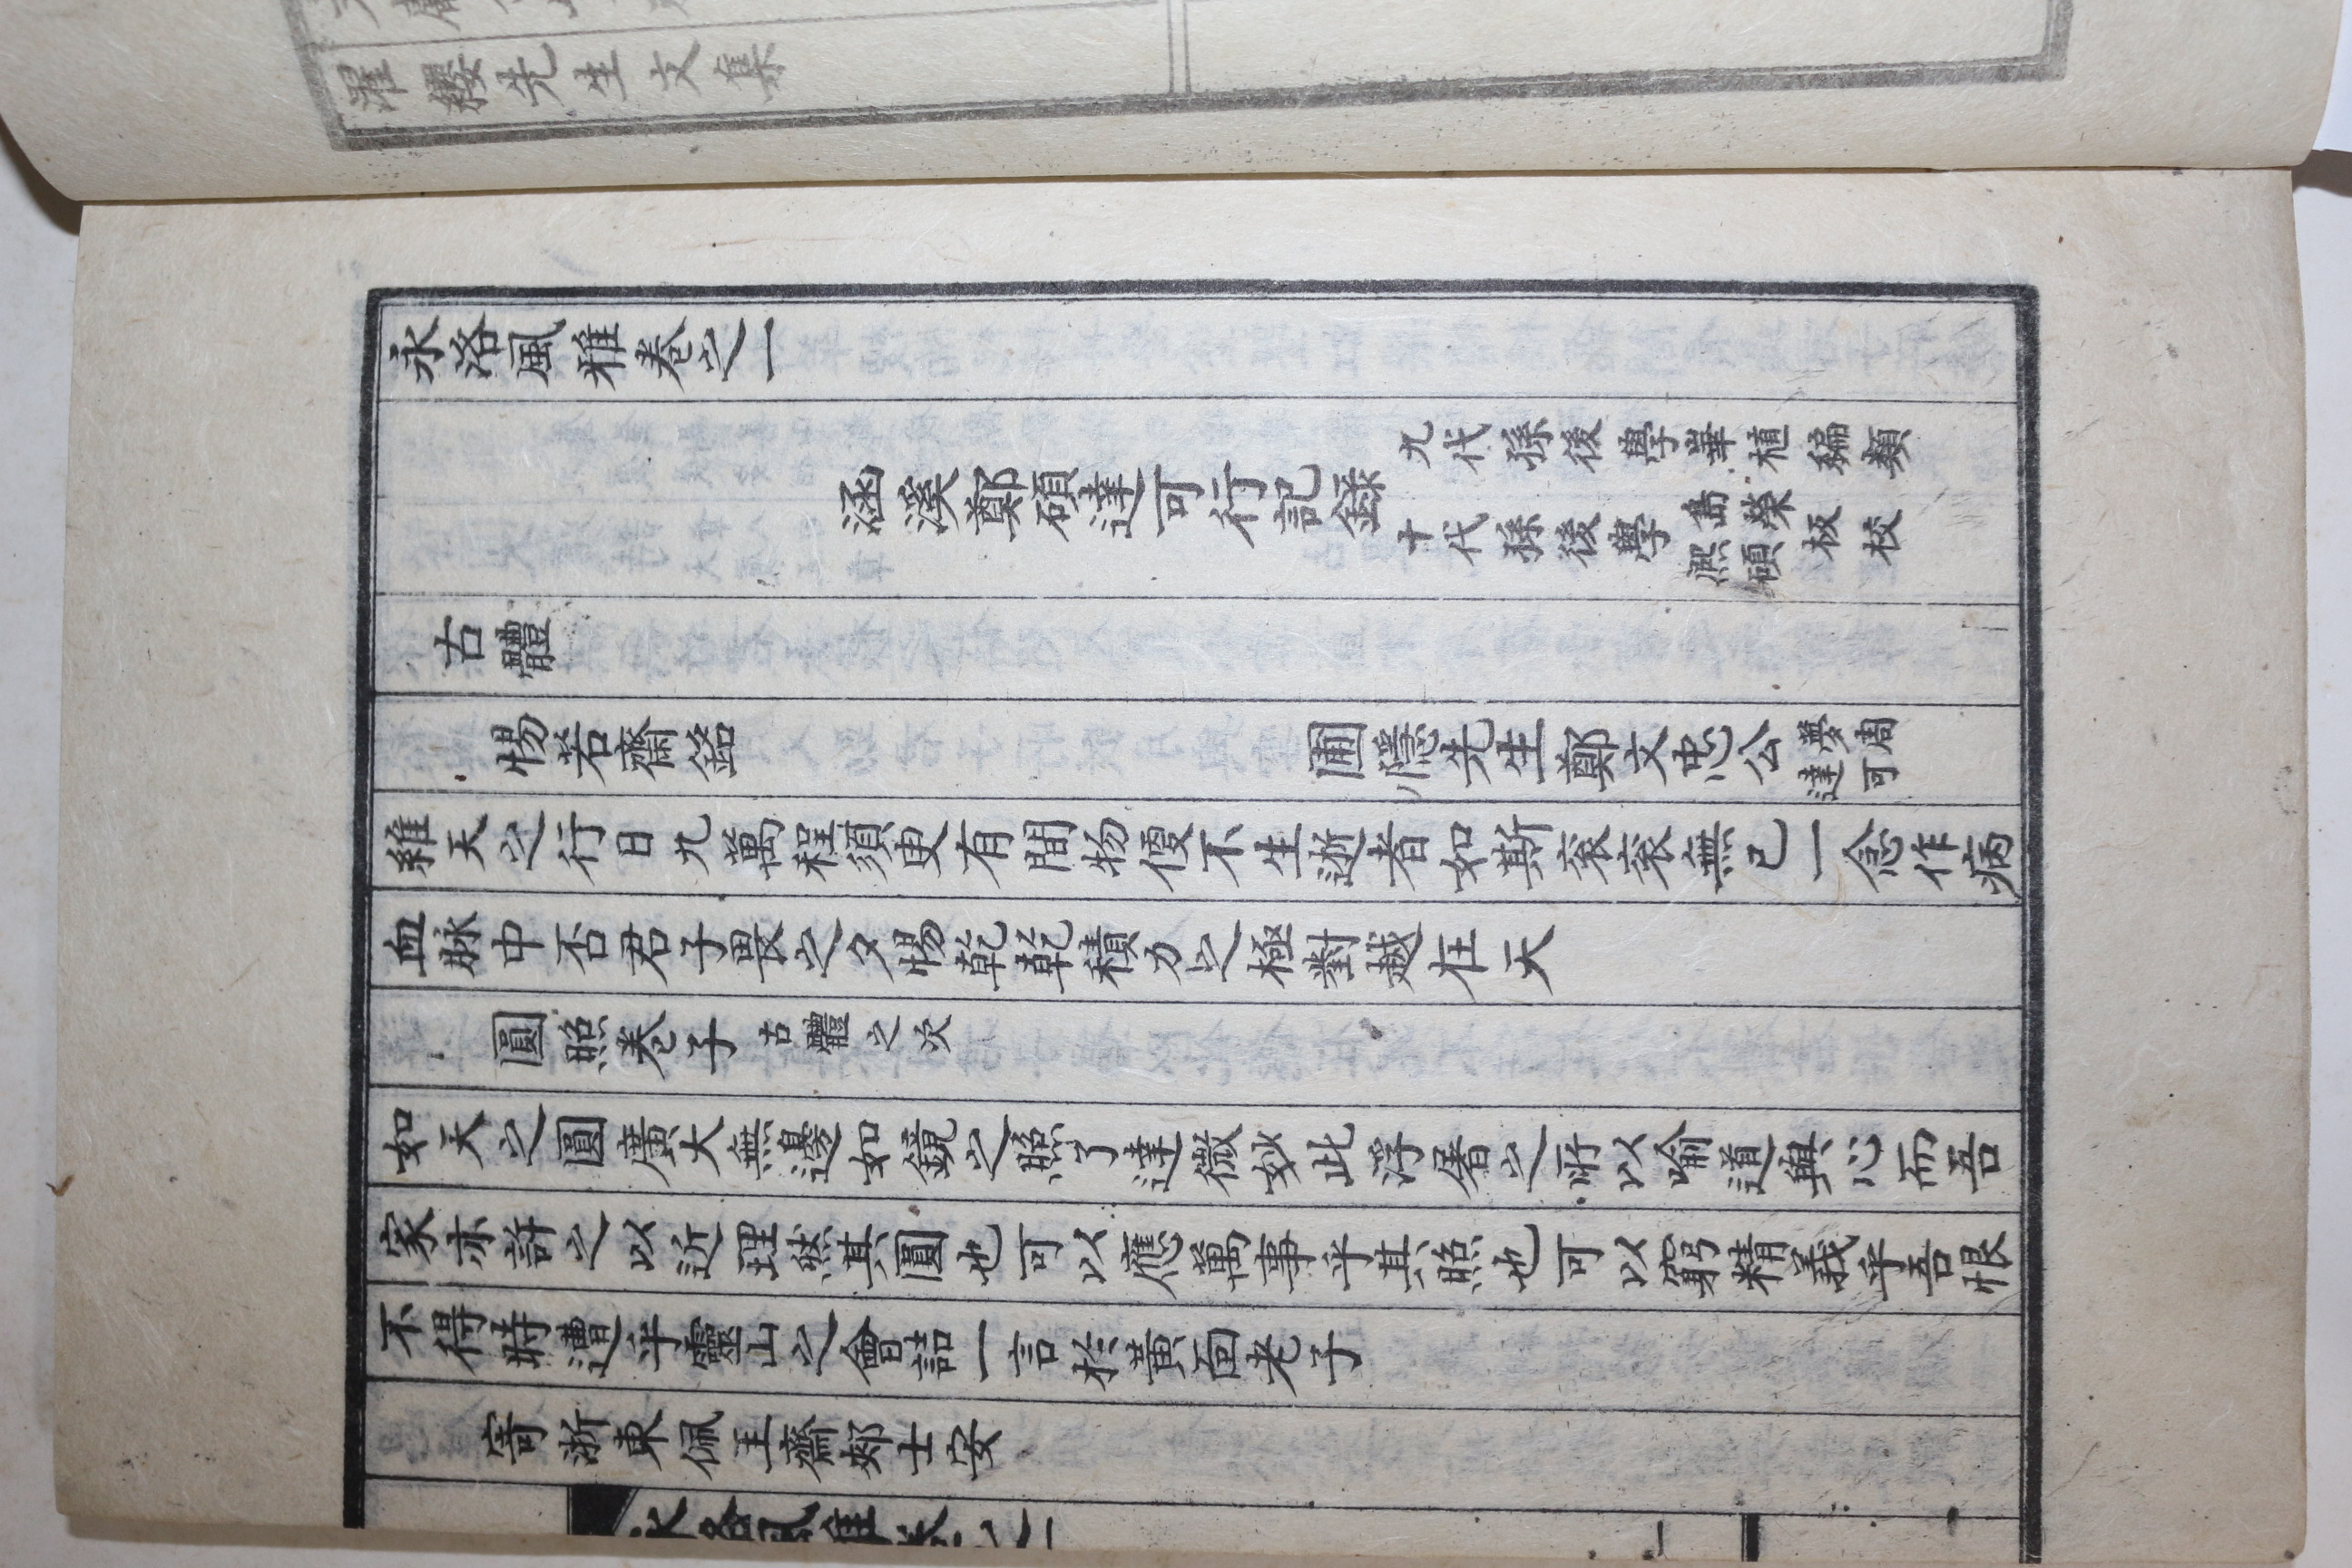 濯纓先生文集
永洛風雅卷之一
涵溪鄭碩達可行記錄
九代孫後學崋植編類
十代孫後學島榮熈碩板校
古體
惕若齋銘 圃隱先生鄭文忠公夢周達可
維天之行日九萬程須臾有間物便不生逝者如斯袞袞無已一念作病
血脉中否君子畏之夕惕乾乾積力之極對越在天
圓照卷子 古體之次
如天之圓廣大無邊如鏡之照了達微妙此浮屠之所以喻道與心而吾
家亦許之以近理然其圓也可以應萬事乎其照也可以窮精義乎吾恨
不得時遭乎靈山之會詰一言於黃面老子
寄浙東佩玉齋郟士安
永洛風雅卷之一
一